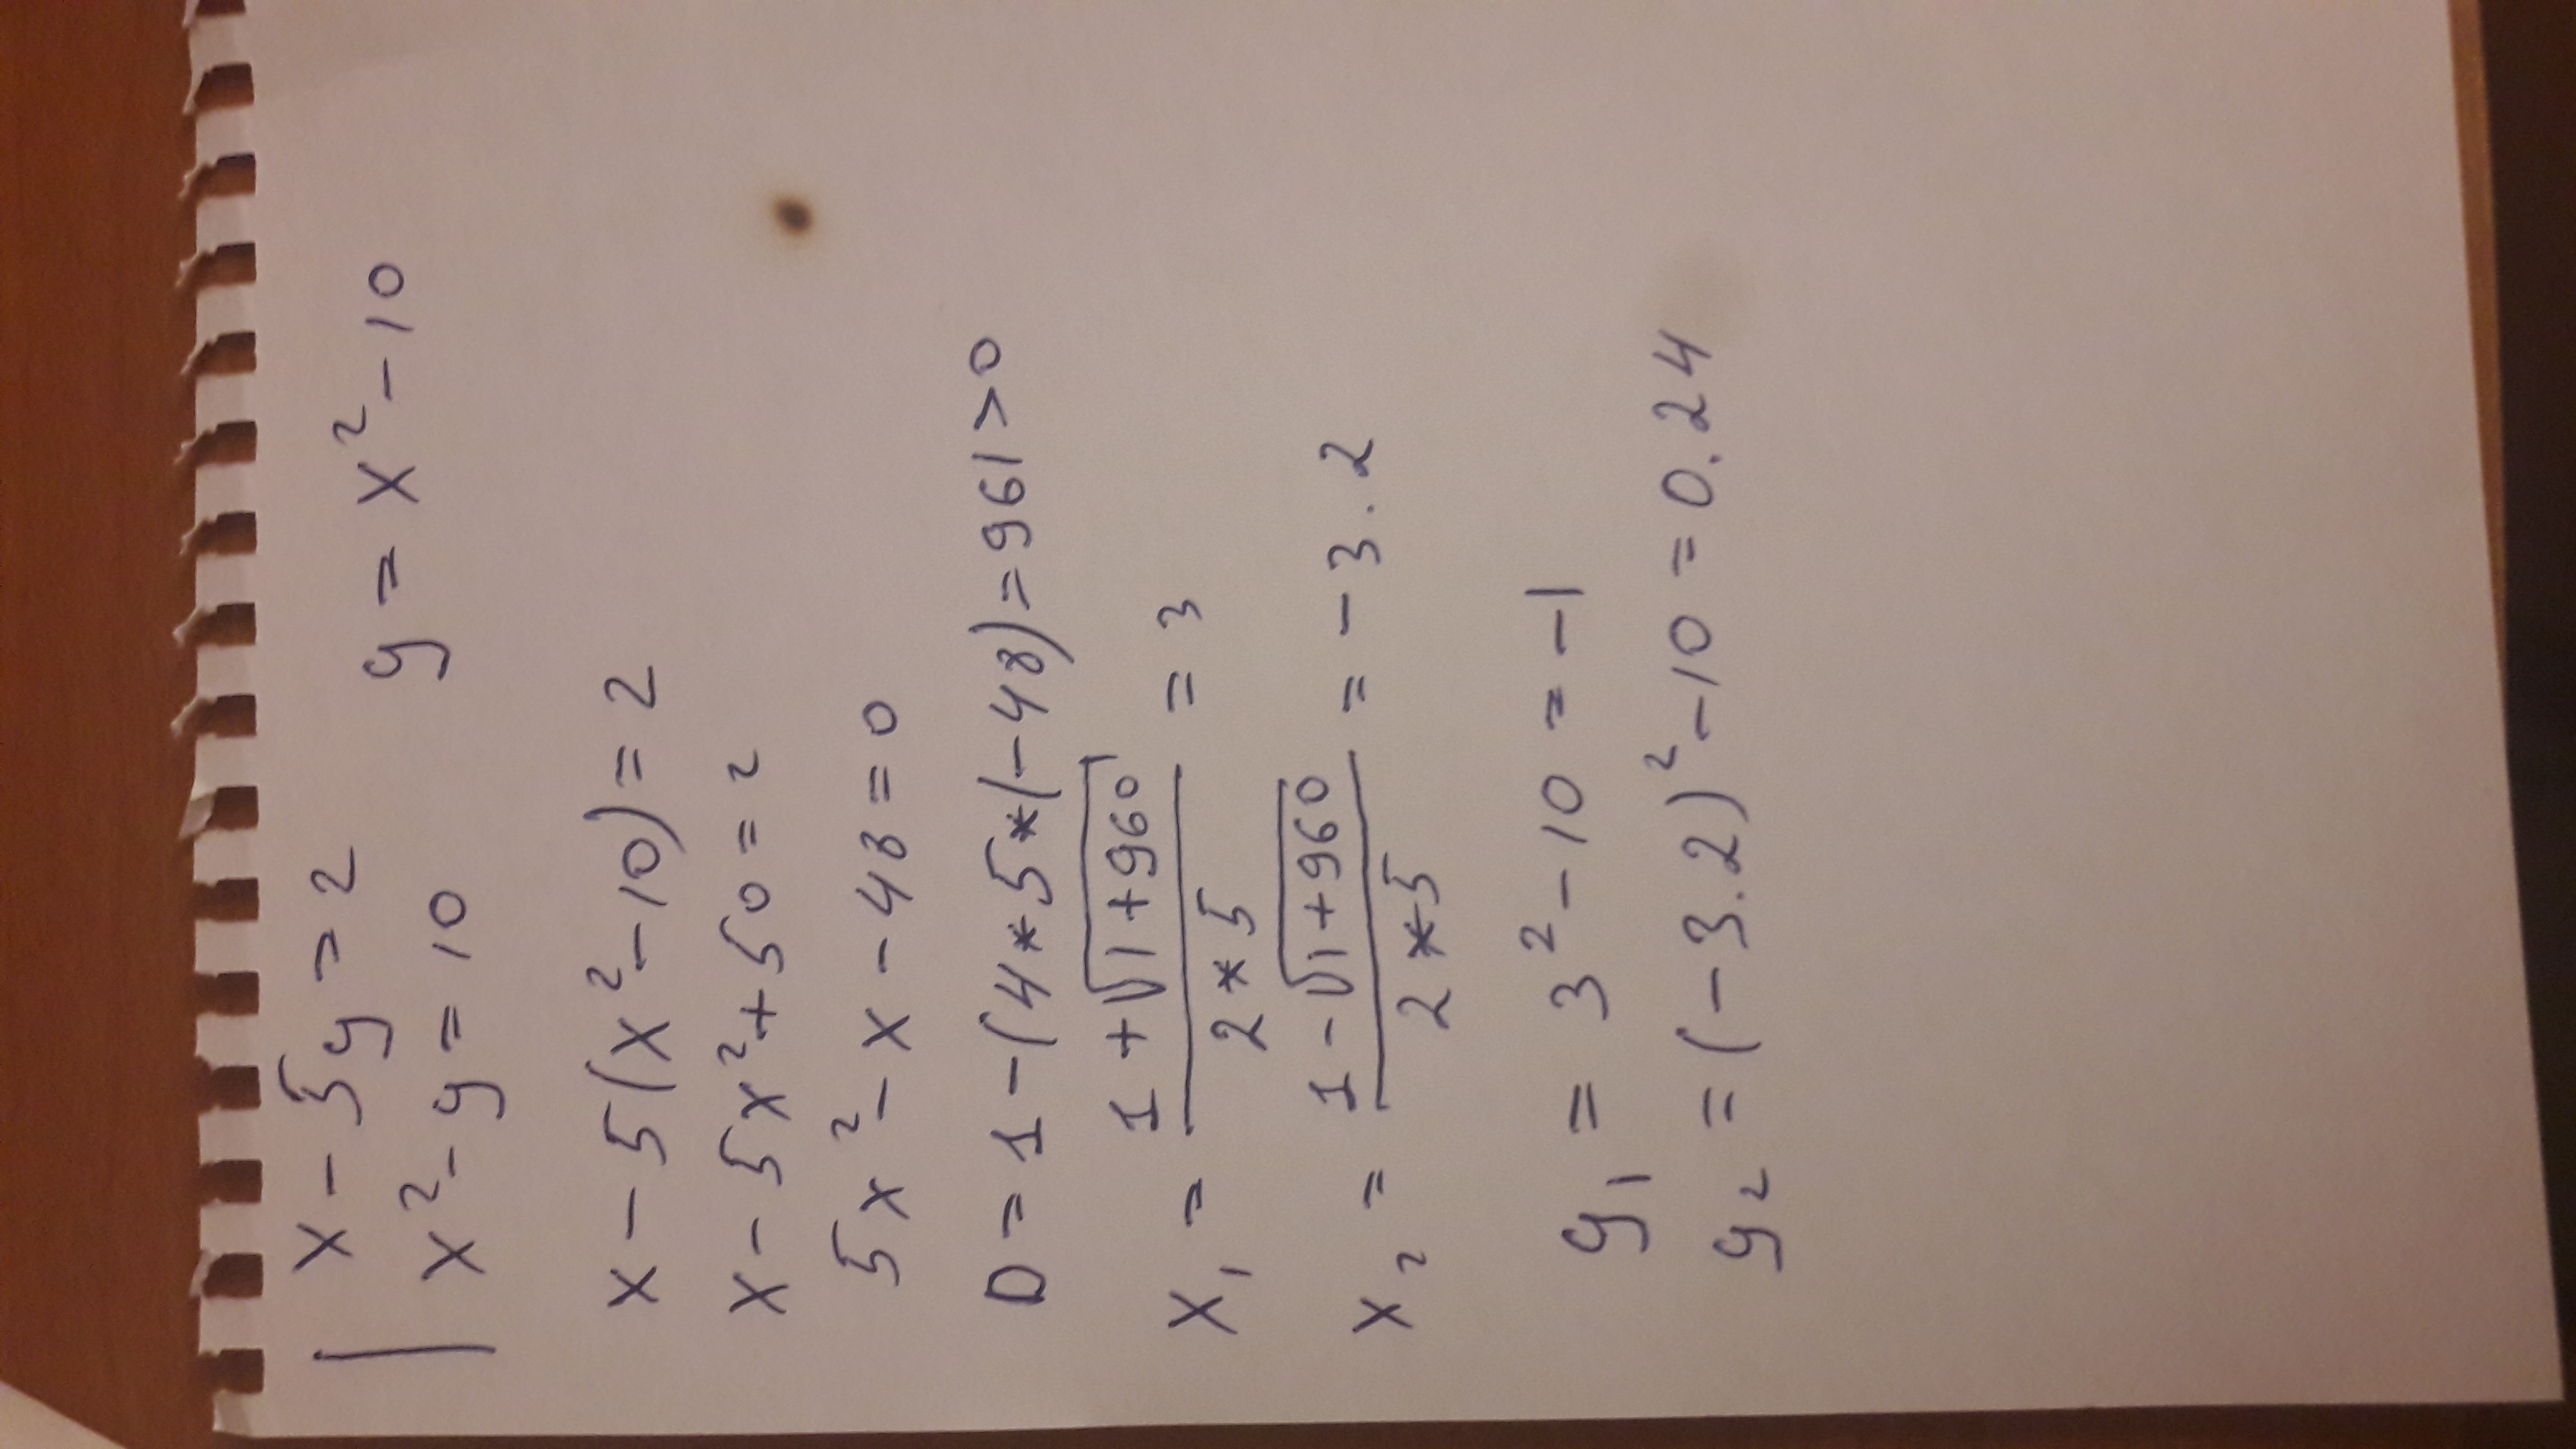 x - 5y = 2
x² - y = 10 y = x² - 10
x - 5(x² - 10) = 2
x - 5x² + 50 = 2
5x² - x - 48 = 0
D = 1 - (4*5*(-48) = 961 > 0
x₁ = (1 + √(1+960))/(2*5) = 3
x₂ = (1 - √(1+960))/(2*5) = -3.2
y₁ = 3² - 10 = -1
y₂ = (-3.2)² - 10 = 0.24